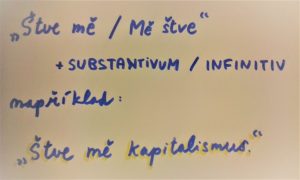 „Štve mě / Mě štve“
+ SUBSTANTIVUM / INFINITIV
například:
„Štve mě kapitalismus.“